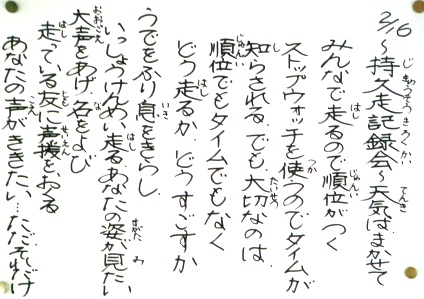 2/16 ～持久走記録会～天気はまかせて
みんなで走るので順位がつく
ストップウォッチを使うのでタイムが
知らされる。でも大切なのは、
順位でもタイムでもなく
どう走るか、どうすごすか
うでをふり息をきらし
いっしょうけんめい走るあなたの姿が見たい
大声をあげ名をよび
走っている友に声援をおくる
あなたの声がききたい…ただそれだけ